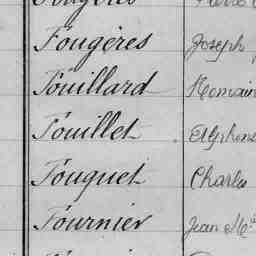 Fougères Joseph
Fouillard Romain
Fouillet Alphons
Fouquet Charles
Fournier Jean M